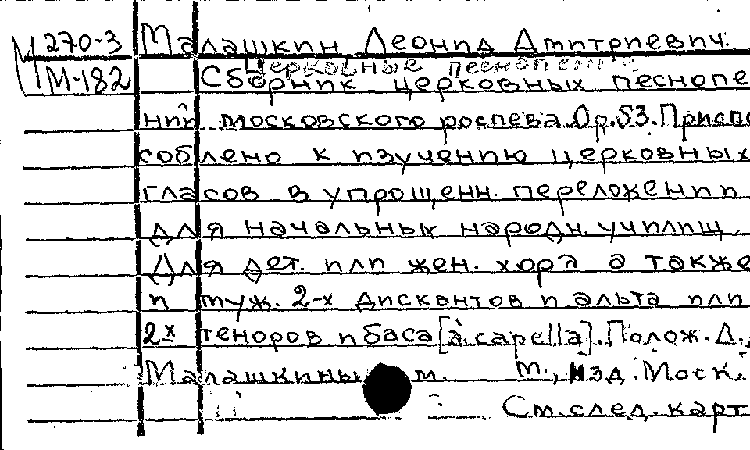 270-3 Малашкин Леонид Дмитриевич.
Церковные песнопения
М-182 Сборник церковных песнопе
ний московского роспева. Ор.53. Приспо
соблено к изучению церковных
гласов в упрощенн. переложении
для начальных народн. училищ.
Для дет. или жен. хора а также
и муж. 2-х дискантов и альта или
2х теноров и баса [a capella]. Полож. Л.
Малашкиным. М., изд. Моск.
См. след. карт